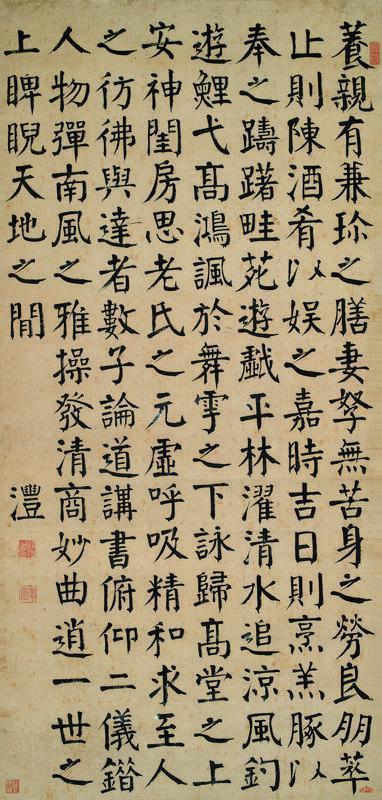 養親有兼珍之膳妻孥無苦身之勞良朋萃
止則陳酒肴以娛之嘉時吉日則烹羔豚以
奉之躊躇畦苑遊戲平林濯清水追涼風釣
遊鯉弋高鴻諷於舞雩之下詠歸高堂之上
安神閨房思老氏之元虛呼吸精和求至人
之彷彿與達者數子論道講書俯仰二儀錯
人物彈南風之雅操發清商妙曲逍一世之
上睥睨天地之間
澧